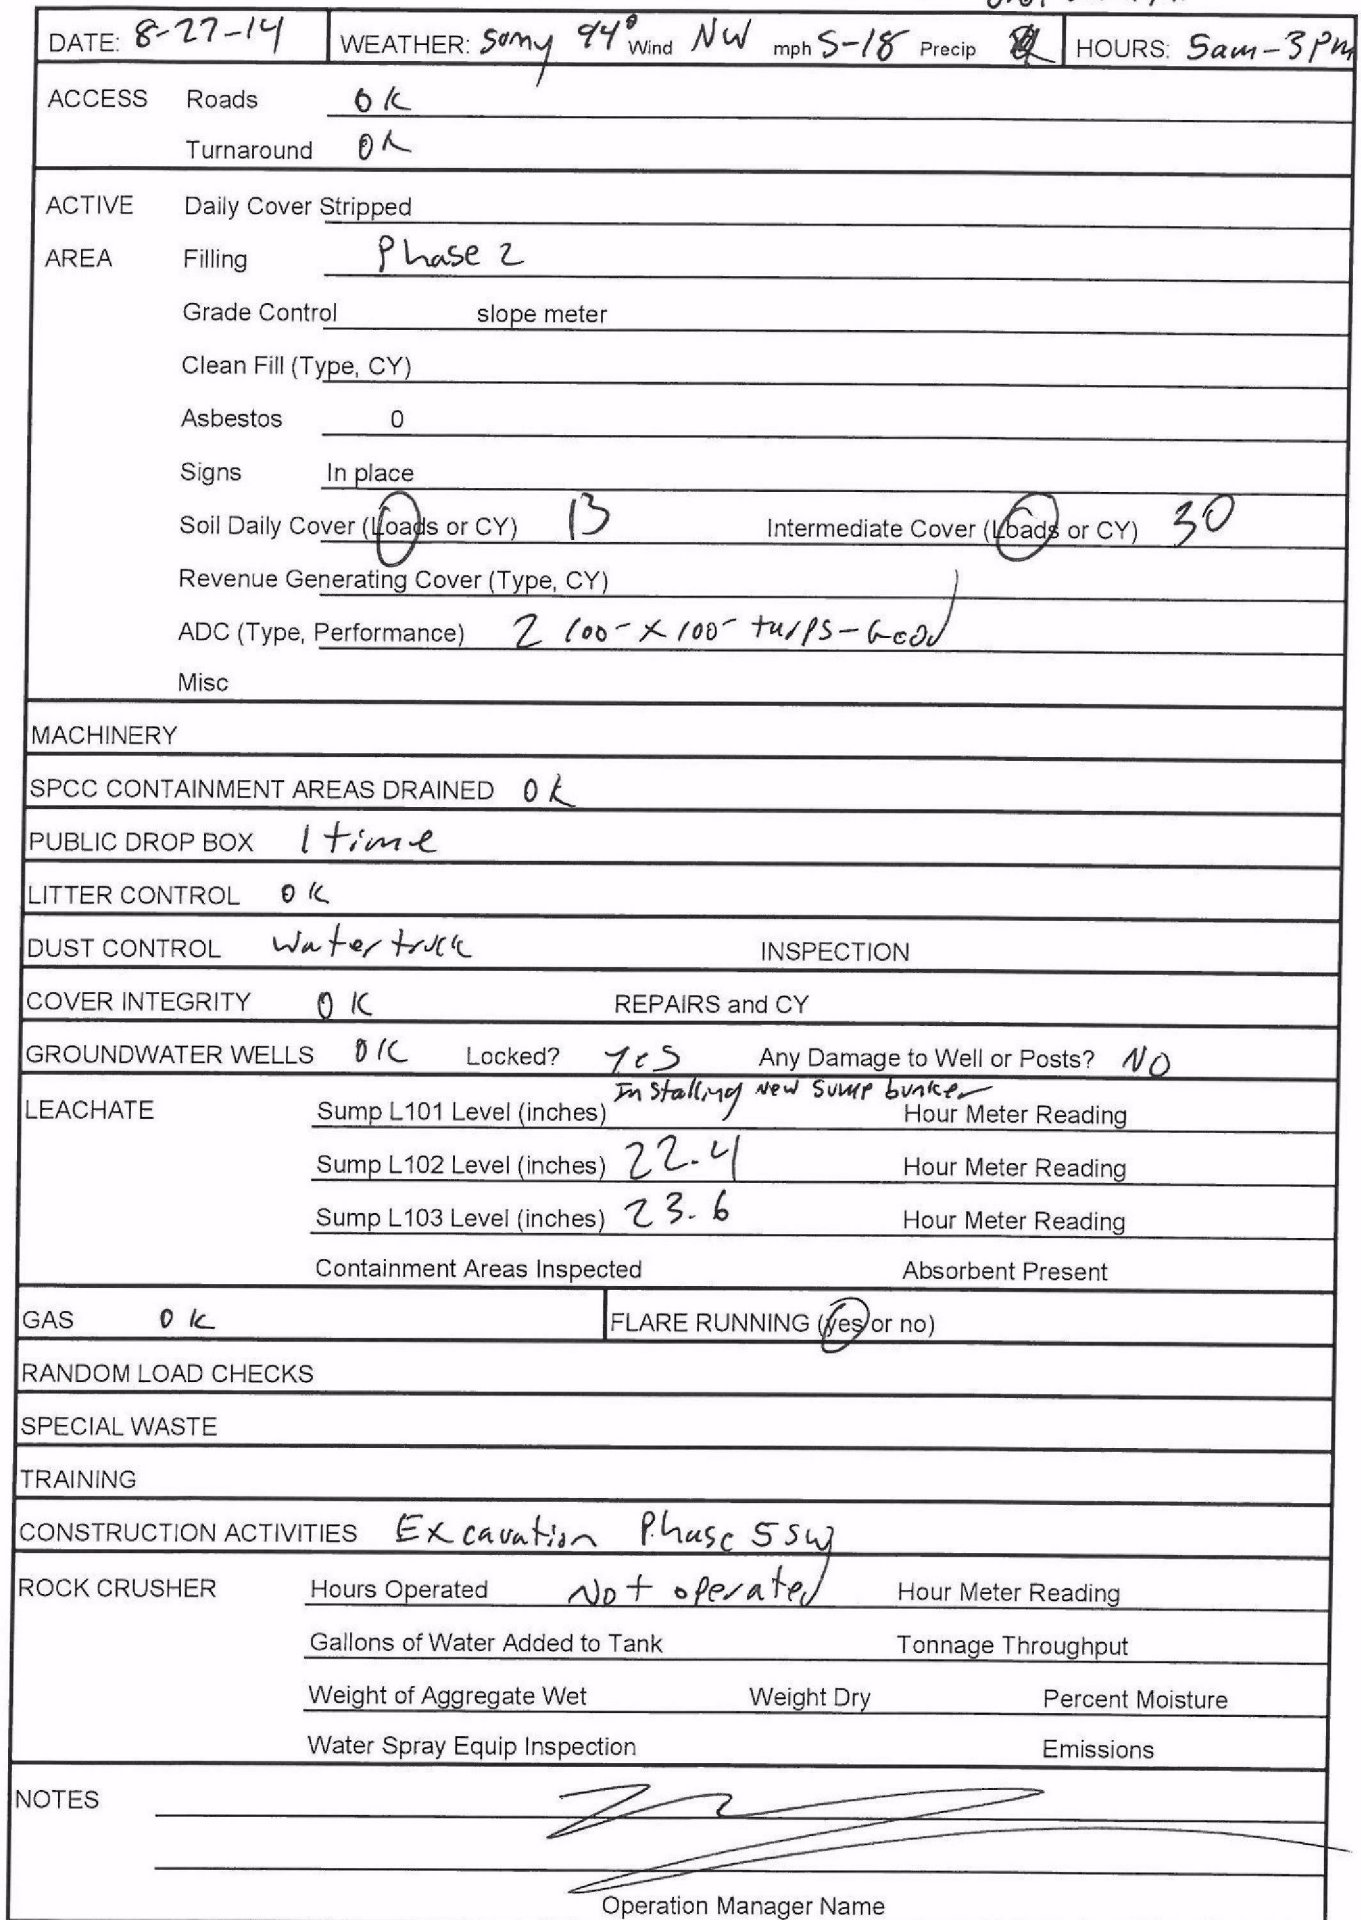 DATE: 8-27-14 WEATHER: sonny 94° Wind NW mph 5-18 Precip HOURS: 5am-3Pm
ACCESS Roads OK
Turnaround OK
ACTIVE Daily Cover Stripped
AREA Filling Phase 2
Grade Control slope meter
Clean Fill (Type, CY)
Asbestos 0
Signs In place
Soil Daily Cover (Loads or CY) 13 Intermediate Cover (Loads or CY) 30
Revenue Generating Cover (Type, CY)
ADC (Type, Performance) 2 100- x 100- tarps-Good
Misc
MACHINERY
SPCC CONTAINMENT AREAS DRAINED OK
PUBLIC DROP BOX 1 time
LITTER CONTROL OK
DUST CONTROL Water truck INSPECTION
COVER INTEGRITY OK REPAIRS and CY
GROUNDWATER WELLS OK Locked? Yes Any Damage to Well or Posts? NO
Installing New Sump bunker
LEACHATE Sump L101 Level (inches) Hour Meter Reading
Sump L102 Level (inches) 22.4 Hour Meter Reading
Sump L103 Level (inches) 23.6 Hour Meter Reading
Containment Areas Inspected Absorbent Present
GAS OK FLARE RUNNING (yes or no)
RANDOM LOAD CHECKS
SPECIAL WASTE
TRAINING
CONSTRUCTION ACTIVITIES Excavation Phase 5 SW
ROCK CRUSHER Hours Operated Not operated Hour Meter Reading
Gallons of Water Added to Tank Tonnage Throughput
Weight of Aggregate Wet Weight Dry Percent Moisture
Water Spray Equip Inspection Emissions
NOTES
Operation Manager Name